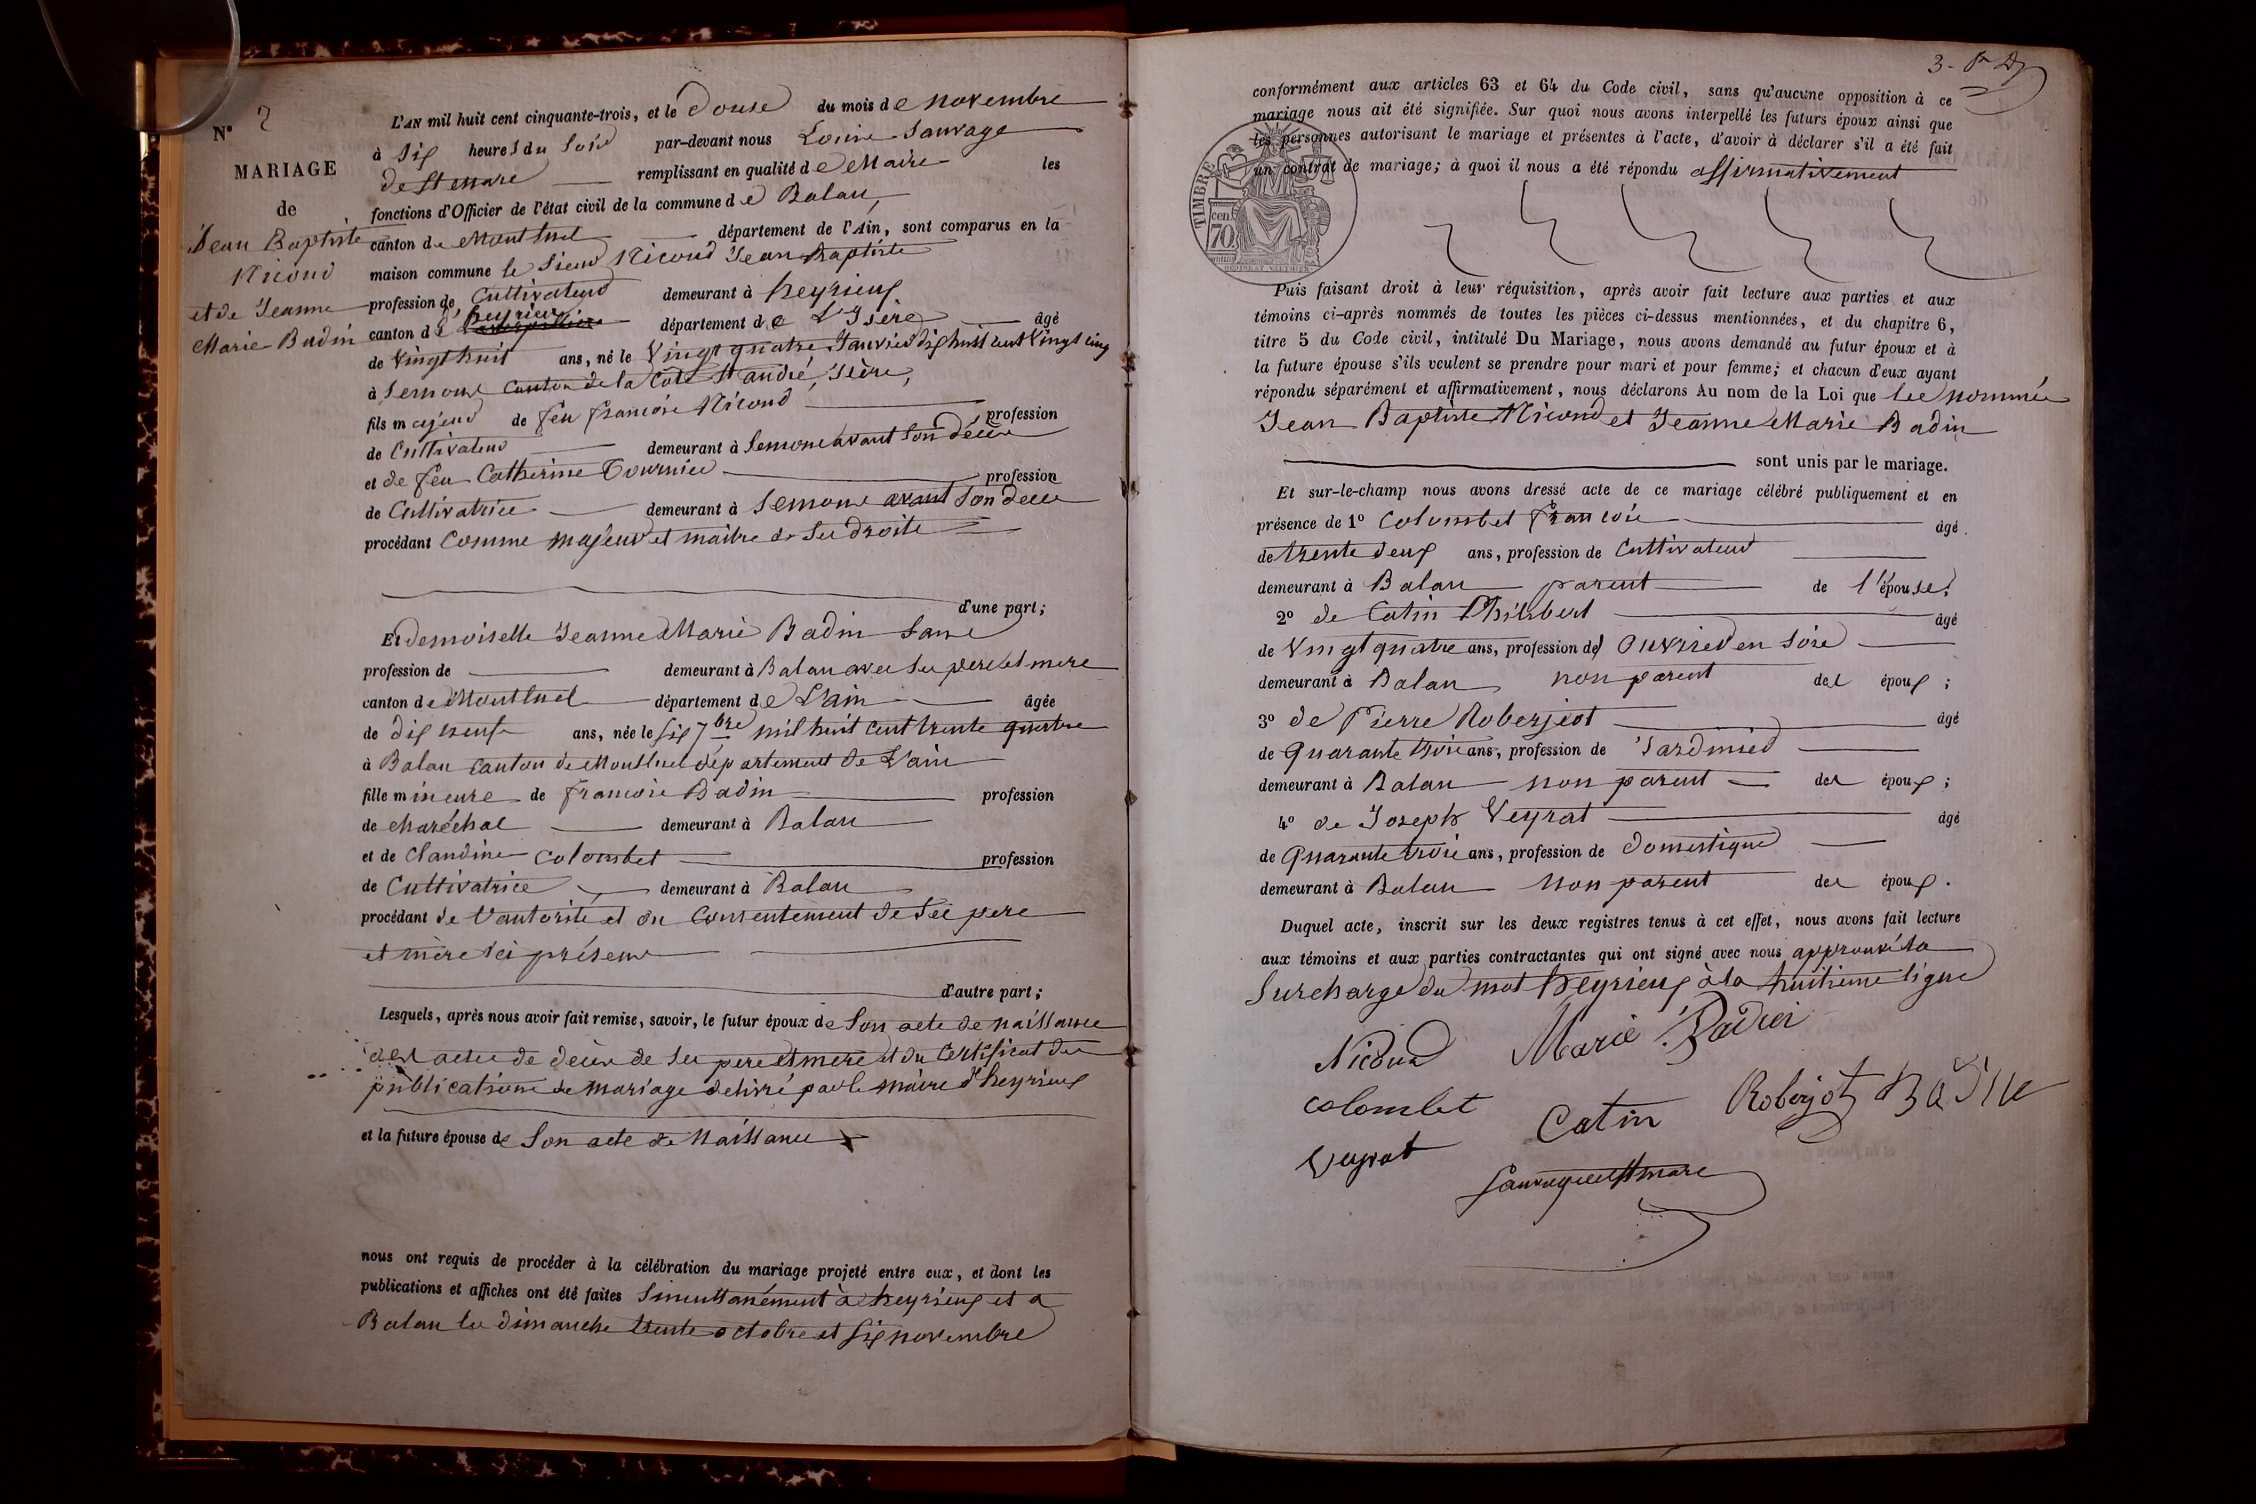 N° 2
MARIAGE
de
Jean Baptiste
Nicoud
et de Jeanne
Marie Badin
L'AN mil huit cent cinquante-trois, et le douse du mois de novembre
à six heures du soir par-devant nous Louis Sauvage
de St Marc remplissant en qualité de Maire les
fonctions d'Officier de l'état civil de la commune de Balan,
canton de Montluel département de l'Ain, sont comparus en la
maison commune le sieur Nicoud Jean Baptiste
profession de Cultivateur demeurant à heyrieux
canton d'heyrieux département de L'Isère âgé
de vingt huit ans, né le vingt quatre Janvier dix huit cent vingt cinq
à Semons canton de la Côte St andré, Isère,
fils majeur de feu francois Nicoud profession
de Cultivateur demeurant à Semons avant son décès
et de feu Catherine Tournier profession
de Cultivatrice demeurant à Semons avant son decès
procédant comme majeur et maitre de ses droits
d'une part;
Et demoiselle Jeanne Marie Badin sans
profession de demeurant à Balan avec ses pere et mere
canton de Montluel département de L'ain âgée
de dix neuf ans, née le six 7bre mil huit cent trente quatre
à Balan canton de Montluel département de L'ain
fille mineure de francois Badin profession
de Maréchal demeurant à Balan
et de Claudine Colombet profession
de Cultivatrice demeurant à Balan
procédant de l'autorité et du consentement de ses pere
et mère ici présens
d'autre part;
Lesquels, après nous avoir fait remise, savoir, le futur époux de son acte de naissance
des actes de décès de ses pere et mere et du certificat des
publications de mariage délivré par le maire d'heyrieux
et la future épouse de son acte de naissance
nous ont requis de procéder à la célébration du mariage projeté entre eux, et dont les
publications et affiches ont été faites simultanément à heyrieux et a
Balan les dimanche trente octobre et six novembre
3-
conformément aux articles 63 et 64 du Code civil, sans qu'aucune opposition à ce
mariage nous ait été signifiée. Sur quoi nous avons interpellé les futurs époux ainsi que
les personnes autorisant le mariage et présentes à l'acte, d'avoir à déclarer s'il a été fait
un contrat de mariage; à quoi il nous a été répondu affirmativement
TIMBRE
cen
70
Puis faisant droit à leur réquisition, après avoir fait lecture aux parties et aux
témoins ci-après nommés de toutes les pièces ci-dessus mentionnées, et du chapitre 6,
titre 5 du Code civil, intitulé Du Mariage, nous avons demandé au futur époux et à
la future épouse s'ils veulent se prendre pour mari et pour femme; et chacun d'eux ayant
répondu séparément et affirmativement, nous déclarons Au nom de la Loi que les nommés
Jean Baptiste Nicoud et Jeanne Marie Badin
sont unis par le mariage.
Et sur-le-champ nous avons dressé acte de ce mariage célébré publiquement et en
présence de 1° Colombet francois âgé
de trente deux ans, profession de Cultivateur
demeurant à Balan parent de l'épouse;
2° de Catin Philibert âgé
de vingt quatre ans, profession de ouvrier en soie
demeurant à Balan non parent des époux;
3° de Pierre Roberjeot âgé
de quarante trois ans, profession de Jardinier
demeurant à Balan non parent des époux;
4° de Joseph Veyrat âgé
de quarante trois ans, profession de domestique
demeurant à Balan non parent des époux.
Duquel acte, inscrit sur les deux registres tenus à cet effet, nous avons fait lecture
aux témoins et aux parties contractantes qui ont signé avec nous approuvé la
surcharge du mot heyrieux à la huitieme ligne
Nicoud Marie Badin
colombet Catin Roberjot Badin
Veyrat
Sauvage de St marc